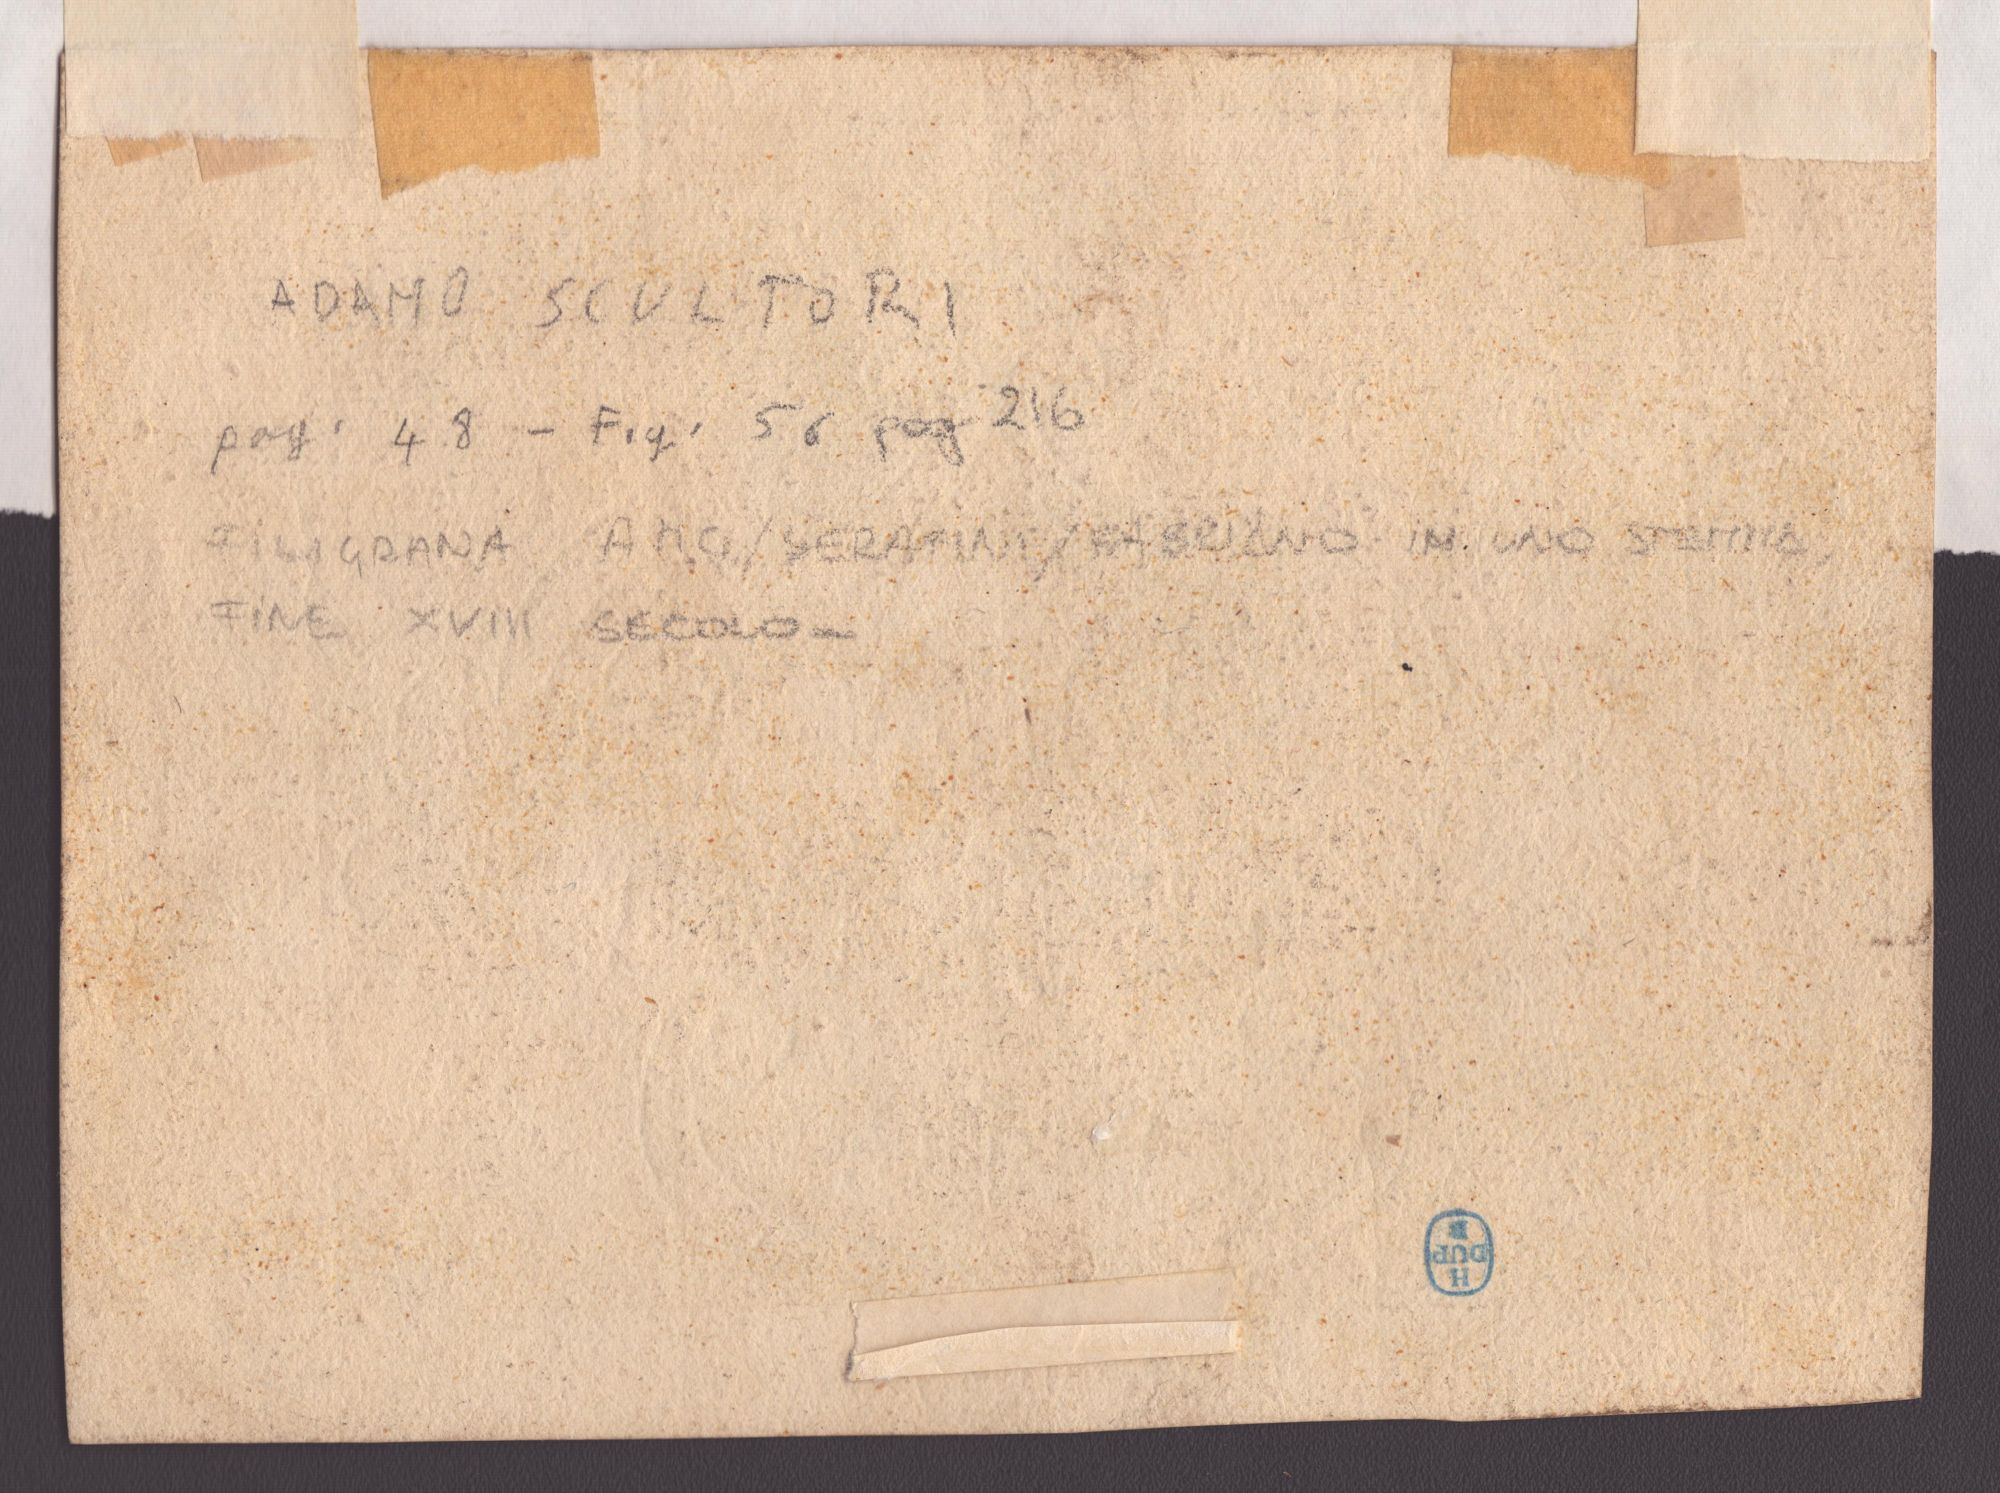 ADAMO SCULTORI
pag. 48 - Fig. 56 pag 216
FILIGRANA AMG/SERAFINI/FABRIANO IN UNO STEMMA,
FINE XVIII SECOLO-
H
DUP
B